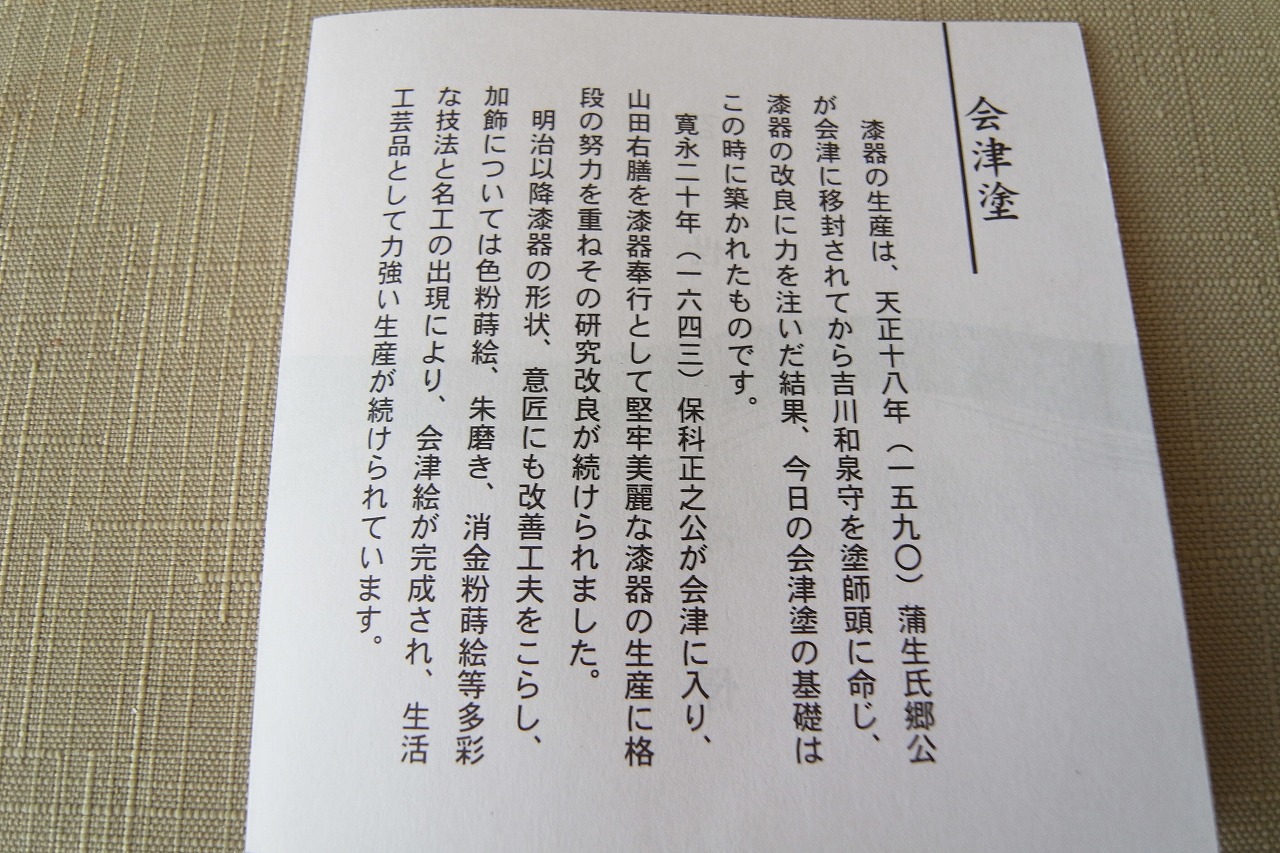 会津塗
漆器の生産は、天正十八年（一五九〇）蒲生氏郷公
が会津に移封されてから吉川和泉守を塗師頭に命じ、
漆器の改良に力を注いだ結果、今日の会津塗の基礎は
この時に築かれたものです。
寛永二十年（一六四三）保科正之公が会津に入り、
山田右膳を漆器奉行として堅牢美麗な漆器の生産に格
段の努力を重ねその研究改良が続けられました。
明治以降漆器の形状、意匠にも改善工夫をこらし、
加飾については色粉蒔絵、朱磨き、消金粉蒔絵等多彩
な技法と名工の出現により、会津絵が完成され、生活
工芸品として力強い生産が続けられています。